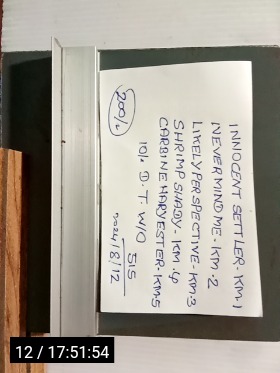 INNOCENT SETTLER - KM,1
NEVERMIND ME - KM.2
LIKELY PERSPECTIVE - KM.3
SHRIMP SHADY - KM.4
CARBINE HARVESTER - KM.5
10%. D.T. W/O 515
2024/8/12
200%
12 / 17:51:54